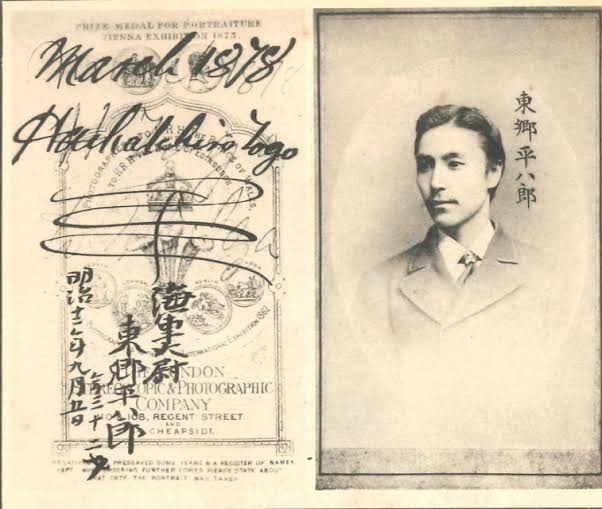 PRIZE MEDAL FOR PORTRAITURE
VIENNA EXHIBITION 1873.
March 1878
Togo
TO H.R.H. THE PRINCE OF WALES
OF EDINBURGH
INTERNATIONAL EXHIBITION 1862
海軍大尉
東郷平八郎
三十二才
明治十二年九月五日
LONDON
STEREOSCOPIC & PHOTOGRAPHIC
COMPANY
108, REGENT STREET.
AND
CHEAPSIDE.
PRESERVED SOME YEARS & A REGISTER OF NAMES
KEPT. WHEN ORDERING FURTHER COPIES PLEASE STATE ABOUT
WHAT DATE THE PORTRAIT WAS TAKEN
東郷平八郎